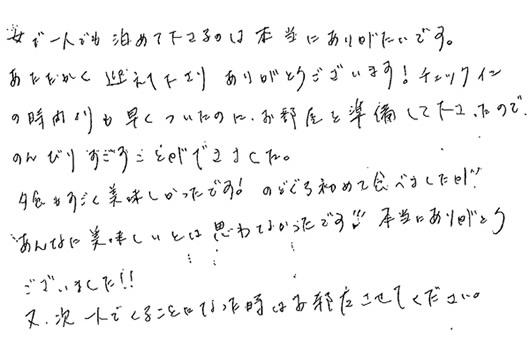 女で一人でも泊めて下さるのは本当にありがたいです。
あたたかく迎えて下さり ありがとうございます！チェックイン
の時間よりも早くついたのに、お部屋を準備して下さったので
のんびりすごすことができました。
夕食もすごく美味しかったです！のどぐろ初めて食べましたが!!
あんなに美味しいとは思わなかったです!!! 本当にありがとう
ございました!!
又、次 一人でくることになった時はお邪魔させてください。